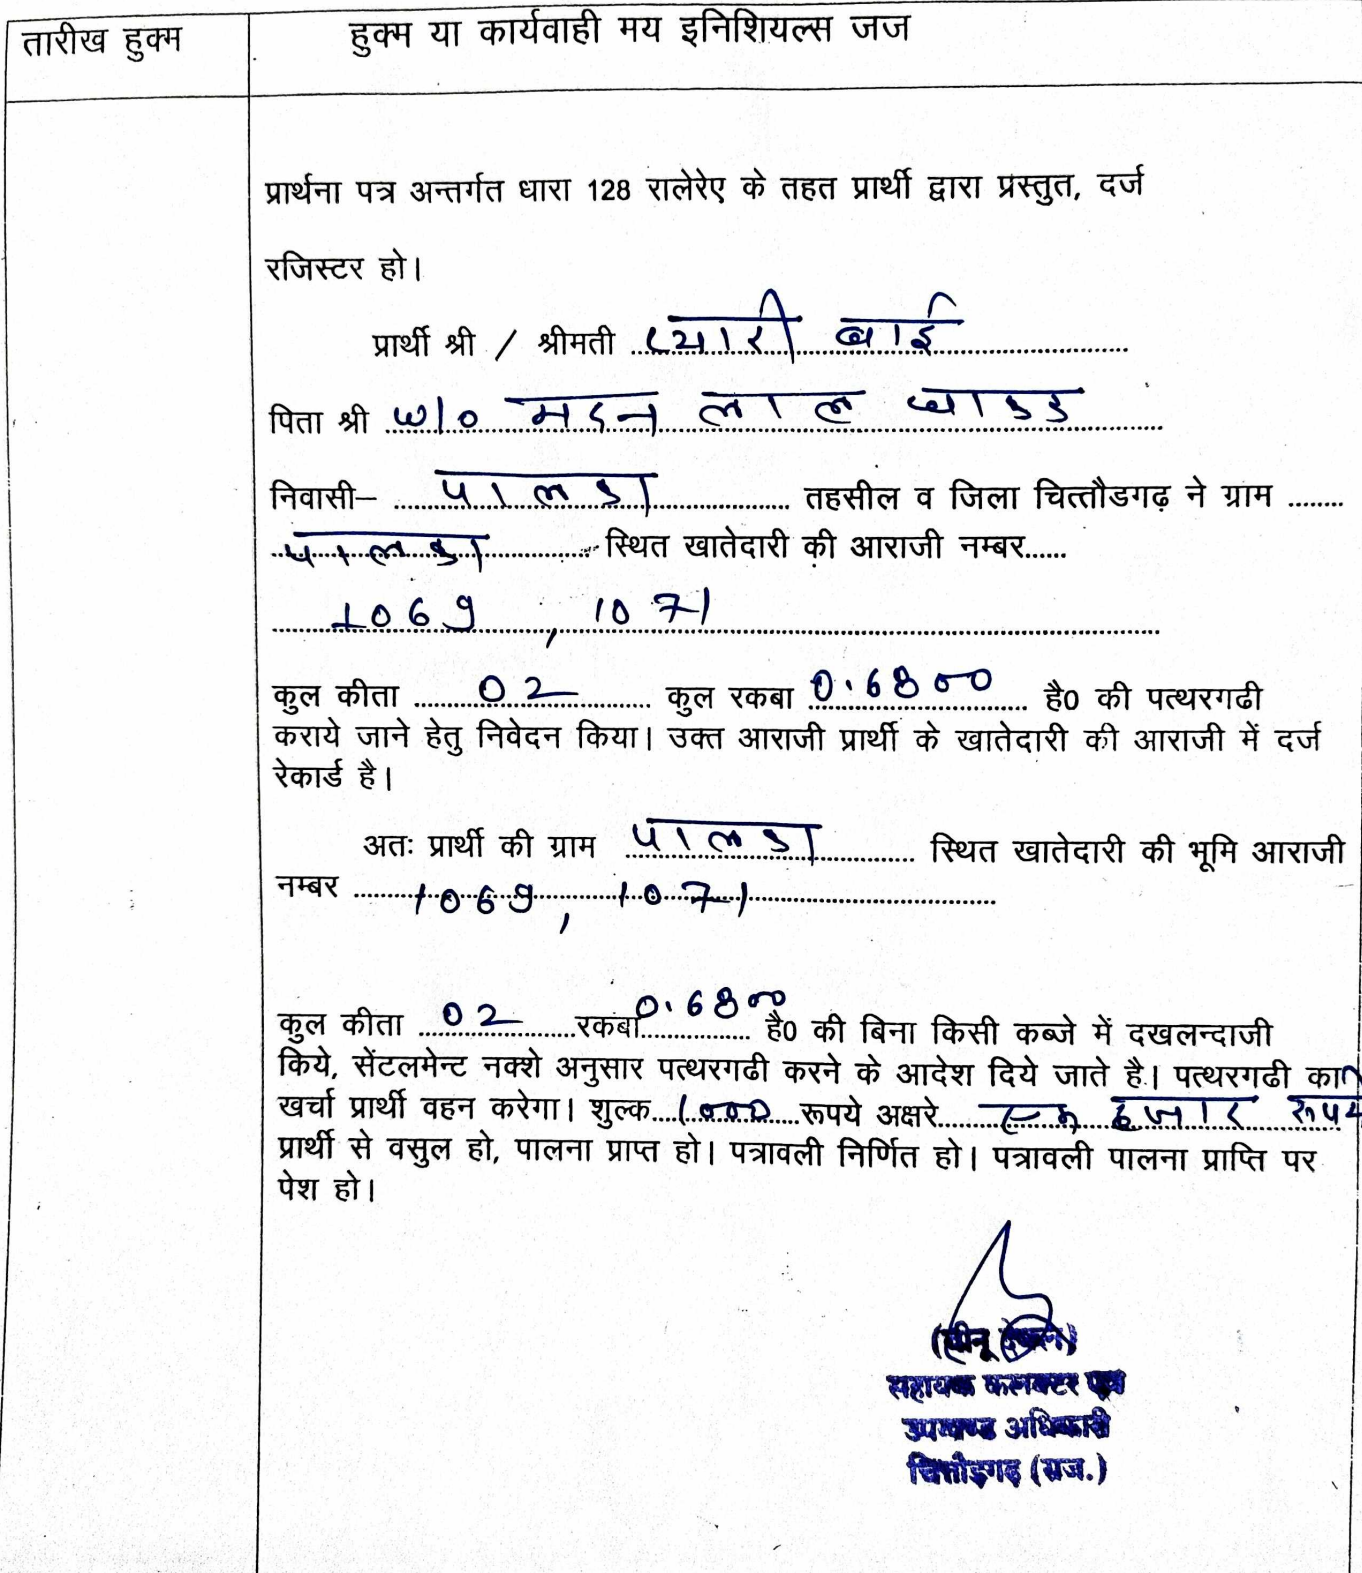 तारीख हुक्म
हुक्म या कार्यवाही मय इनिशियल्स जज
प्रार्थना पत्र अन्तर्गत धारा 128 रालेरेए के तहत प्रार्थी द्वारा प्रस्तुत, दर्ज
रजिस्टर हो।
प्रार्थी श्री / श्रीमती ..प्यारी बाई..
पिता श्री ..w/o मदन लाल..
निवासी– ..पालडा.. तहसील व जिला चित्तौडगढ़ ने ग्राम ........
..पालडा.. स्थित खातेदारी की आराजी नम्बर......
1069, 1071
कुल कीता ..02.. कुल रकबा 0.6800 है0 की पत्थरगढी
कराये जाने हेतु निवेदन किया। उक्त आराजी प्रार्थी के खातेदारी की आराजी में दर्ज
रेकार्ड है।
अतः प्रार्थी की ग्राम ..पालडा.. स्थित खातेदारी की भूमि आराजी
नम्बर ..1069, 1071..
कुल कीता ..02.. रकबा 0.6800 है0 की बिना किसी कब्जे में दखलन्दाजी
किये, सेंटलमेन्ट नक्शे अनुसार पत्थरगढी करने के आदेश दिये जाते है। पत्थरगढी का
खर्चा प्रार्थी वहन करेगा। शुल्क..1000..रूपये अक्षरे..एक हजार रूपये
प्रार्थी से वसुल हो, पालना प्राप्त हो। पत्रावली निर्णित हो। पत्रावली पालना प्राप्ति पर
पेश हो।
सहायक कलक्टर एवं
उपखण्ड अधिकारी
चित्तौड़गढ़ (राज.)